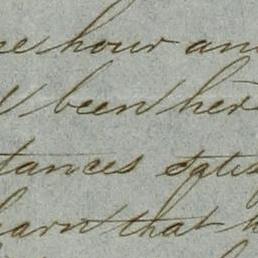 hour an
been her
tances satis
earn that h